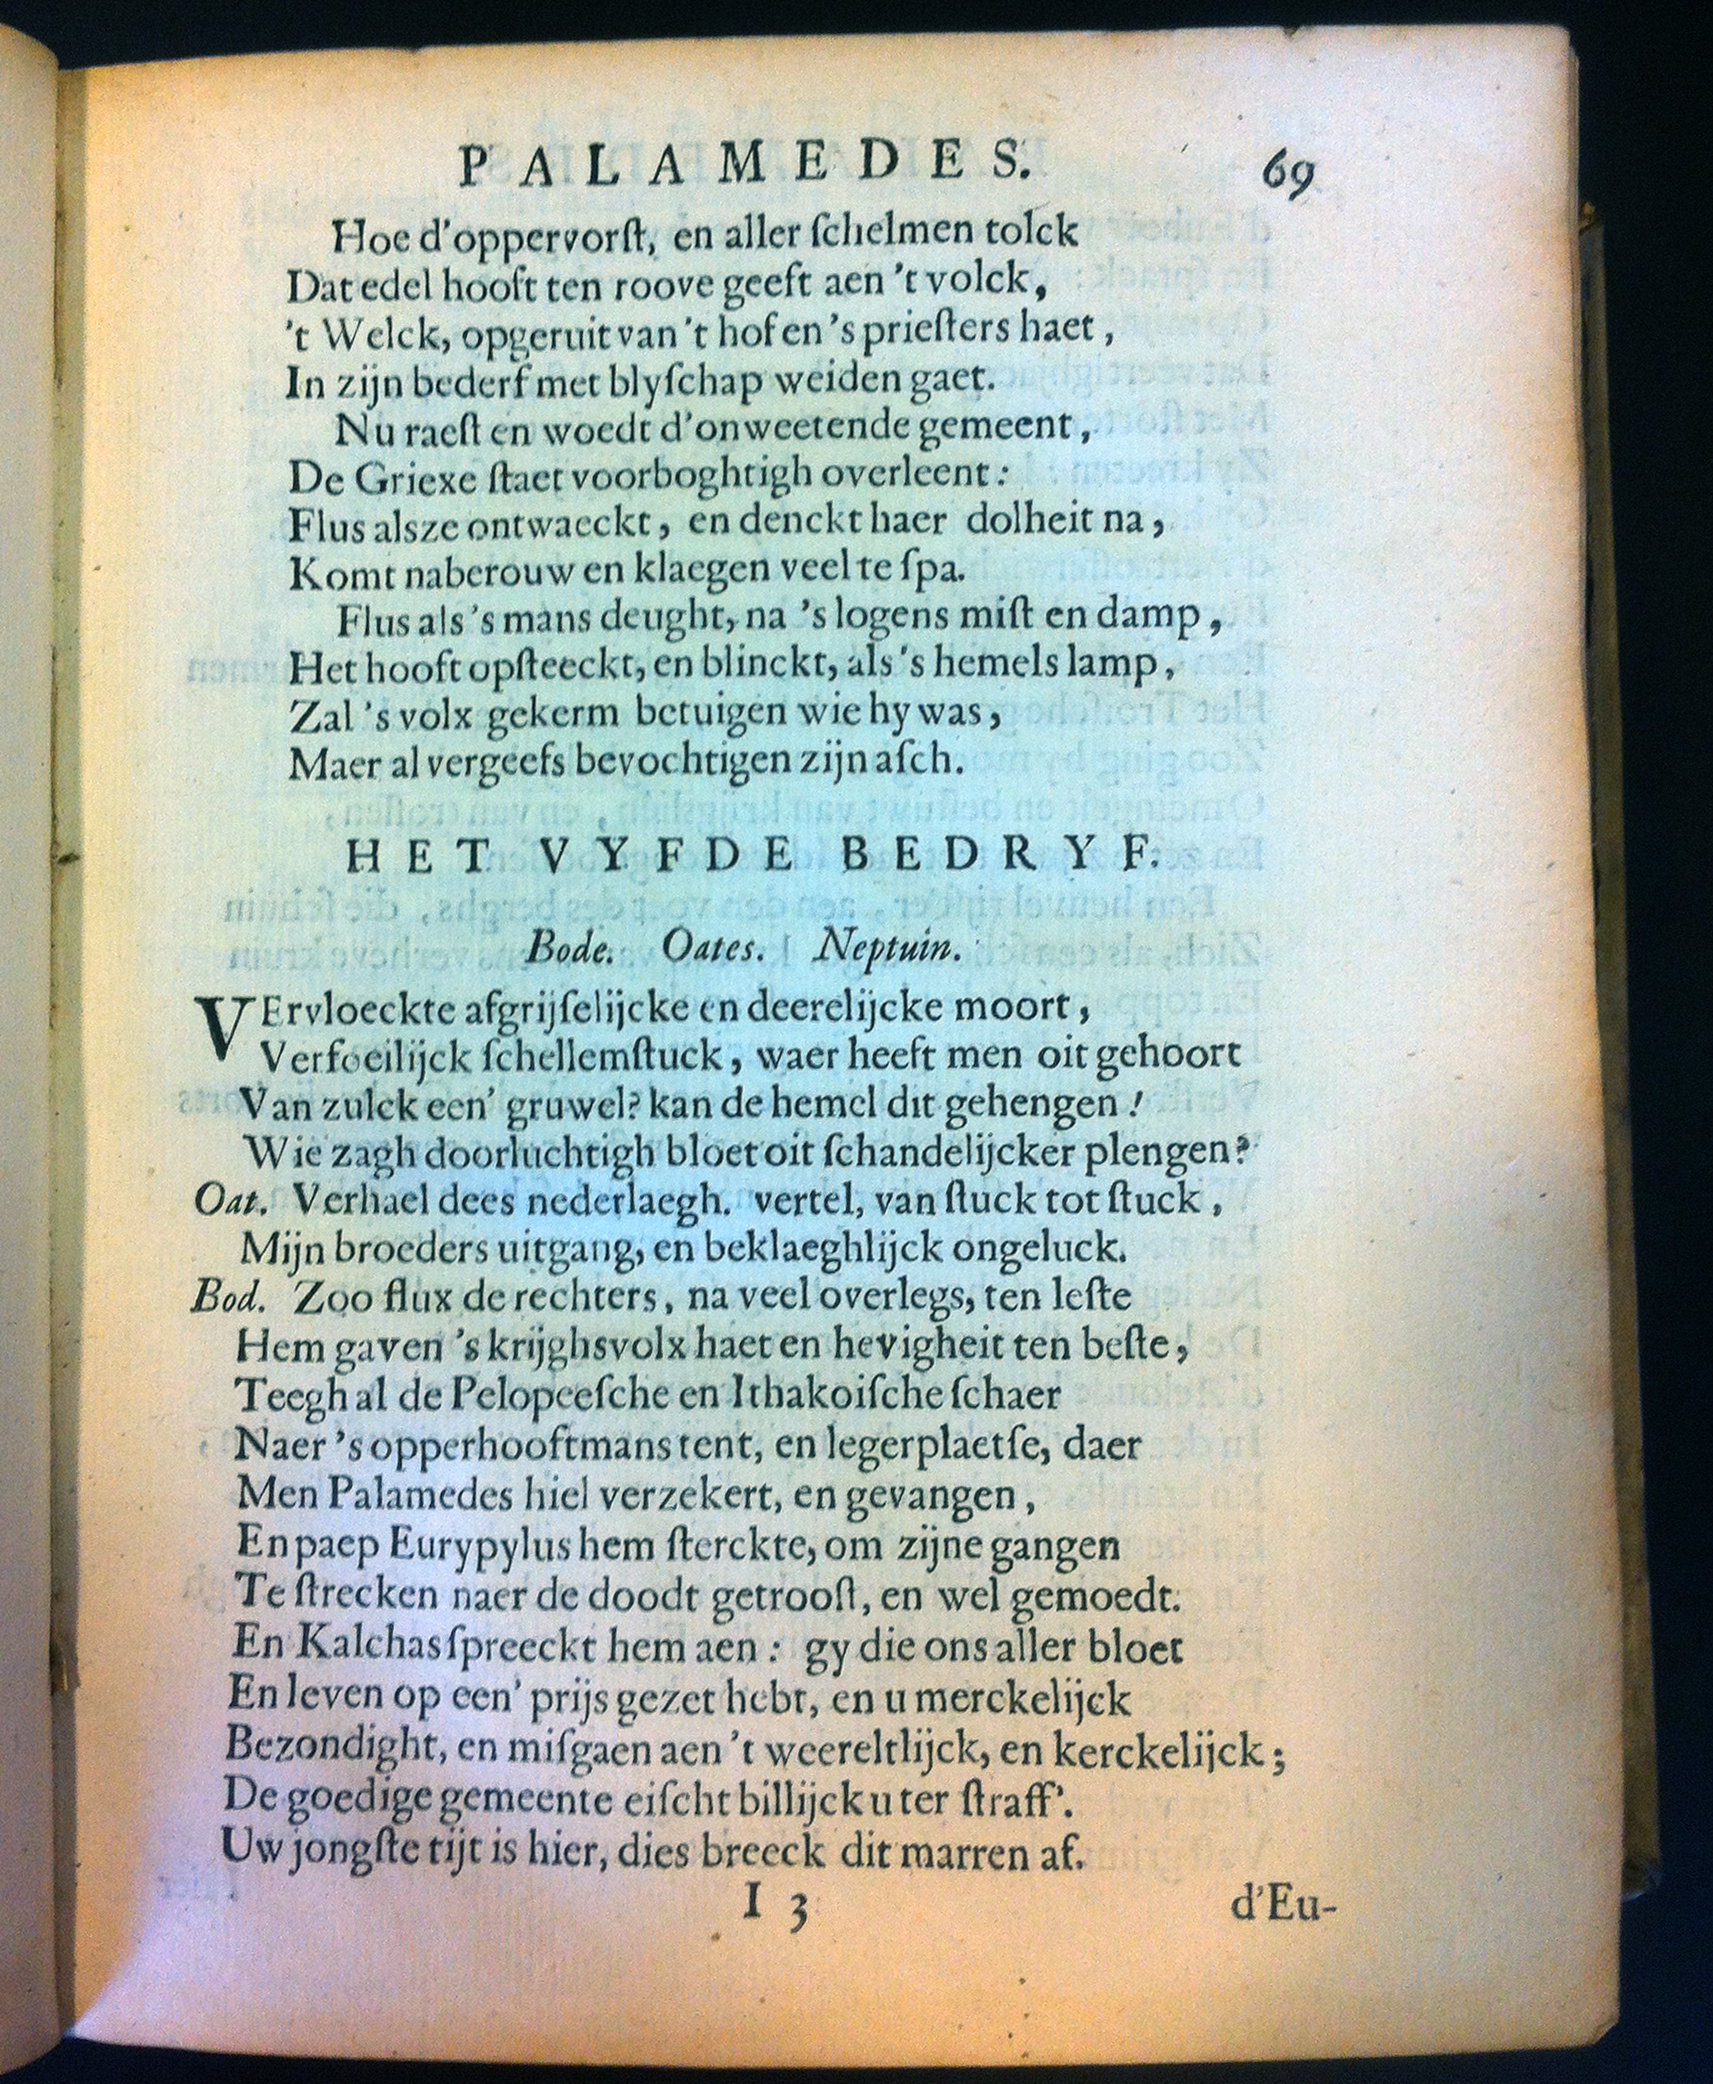 PALAMEDES. 69
Hoe d'oppervorſt, en aller ſchelmen tolck
Dat edel hooft ten roove geeft aen 't volck,
't Welck, opgeruit van 't hof en 's prieſters haet,
In zijn bederf met blyſchap weiden gaet.
Nu raeſt en woedt d'onweetende gemeent,
De Griexe ſtaet voorboghtigh overleent:
Flus alsze ontwaeckt, en denckt haer dolheit na,
Komt naberouw en klaegen veel te ſpa.
Flus als 's mans deught, na 's logens miſt en damp,
Het hooft opſteeckt, en blinckt, als 's hemels lamp,
Zal 's volx gekerm betuigen wie hy was,
Maer al vergeefs bevochtigen zijn aſch.
HET VYFDE BEDRYF.
Bode. Oates. Neptuin.
VErvloeckte afgrijſelijcke en deerelijcke moort,
Verfoeilijck ſchellemſtuck, waer heeft men oit gehoort
Van zulck een' gruwel? kan de hemel dit gehengen!
Wie zagh doorluchtigh bloet oit ſchandelijcker plengen?
Oat. Verhael dees nederlaegh. vertel, van ſtuck tot ſtuck,
Mijn broeders uitgang, en beklaeghlijck ongeluck.
Bod. Zoo flux de rechters, na veel overlegs, ten leſte
Hem gaven 's krijghsvolx haet en hevigheit ten beſte,
Teegh al de Pelopeeſche en Ithakoiſche ſchaer
Naer 's opperhooftmans tent, en legerplaetſe, daer
Men Palamedes hiel verzekert, en gevangen,
En paep Eurypylus hem ſterckte, om zijne gangen
Te ſtrecken naer de doodt getrooſt, en wel gemoedt.
En Kalchas ſpreeckt hem aen: gy die ons aller bloet
En leven op een' prijs gezet hebt, en u merckelijck
Bezondight, en miſgaen aen 't weereltlijck, en kerckelijck;
De goedige gemeente eiſcht billijck u ter ſtraff'.
Uw jongſte tijt is hier, dies breeck dit marren af.
I 3 d'Eu-